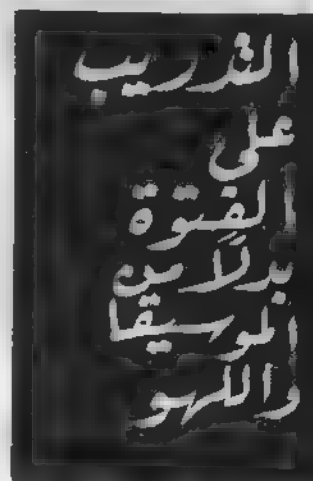 التدريب
على
الفتوة
بدلا من
الموسيقا
واللهو